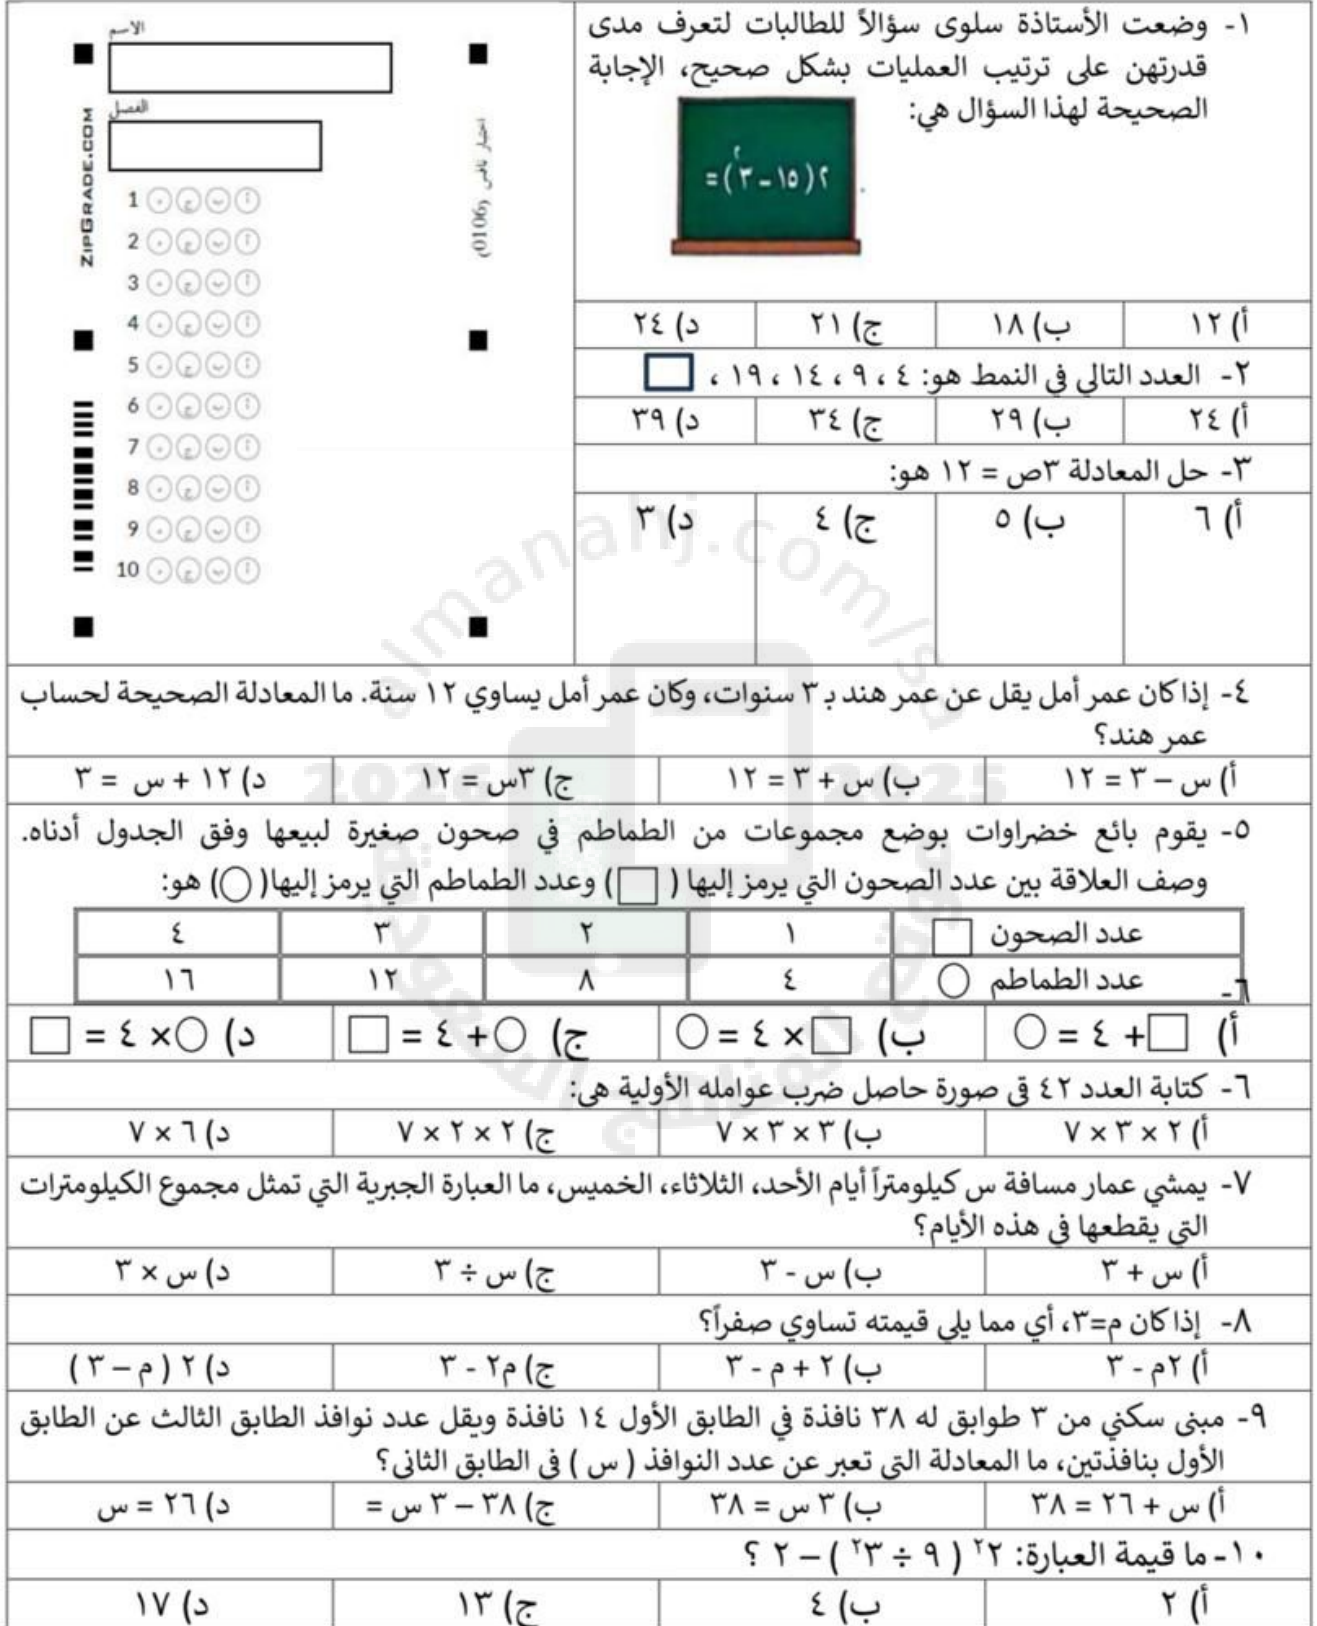 ١- وضعت الأستاذة سلوى سؤالاً للطالبات لتعرف مدى
قدرتهن على ترتيب العمليات بشكل صحيح، الإجابة
الصحيحة لهذا السؤال هي:
٢(١٥ - ٣٢) =
أ) ١٢ ب) ١٨ ج) ٢١ د) ٢٤
٢- العدد التالي في النمط هو: ٤ ، ٩ ، ١٤ ، ١٩ ،
أ) ٢٤ ب) ٢٩ ج) ٣٤ د) ٣٩
٣- حل المعادلة ٣ص = ١٢ هو:
أ) ٦ ب) ٥ ج) ٤ د) ٣
الاسم
الفصل
ZIPGRADE.COM
اختبار نافس (0106)
1 أ ب ج د
2 أ ب ج د
3 أ ب ج د
4 أ ب ج د
5 أ ب ج د
6 أ ب ج د
7 أ ب ج د
8 أ ب ج د
9 أ ب ج د
10 أ ب ج د
٤- إذا كان عمر أمل يقل عن عمر هند بـ ٣ سنوات، وكان عمر أمل يساوي ١٢ سنة. ما المعادلة الصحيحة لحساب
عمر هند؟
أ) س – ٣ = ١٢ ب) س + ٣ = ١٢ ج) ٣س = ١٢ د) ١٢ + س = ٣
٥- يقوم بائع خضراوات بوضع مجموعات من الطماطم في صحون صغيرة لبيعها وفق الجدول أدناه.
وصف العلاقة بين عدد الصحون التي يرمز إليها ( □ ) وعدد الطماطم التي يرمز إليها( ○ ) هو:
عدد الصحون □ ١ ٢ ٣ ٤
عدد الطماطم ○ ٤ ٨ ١٢ ١٦
٦-
أ) □ + ٤ = ○ ب) □ × ٤ = ○ ج) ○ + ٤ = □ د) ○ × ٤ = □
٦- كتابة العدد ٤٢ في صورة حاصل ضرب عوامله الأولية هي:
أ) ٢ × ٣ × ٧ ب) ٣ × ٣ × ٧ ج) ٢ × ٢ × ٧ د) ٦ × ٧
٧- يمشي عمار مسافة س كيلومتراً أيام الأحد، الثلاثاء، الخميس، ما العبارة الجبرية التي تمثل مجموع الكيلومترات
التي يقطعها في هذه الأيام؟
أ) س + ٣ ب) س - ٣ ج) س ÷ ٣ د) س × ٣
٨- إذا كان م=٣، أي مما يلي قيمته تساوي صفراً؟
أ) ٢م - ٣ ب) ٢ + م - ٣ ج) م٢ - ٣ د) ٢ ( م – ٣ )
٩- مبنى سكني من ٣ طوابق له ٣٨ نافذة في الطابق الأول ١٤ نافذة ويقل عدد نوافذ الطابق الثالث عن الطابق
الأول بنافذتين، ما المعادلة التي تعبر عن عدد النوافذ ( س ) في الطابق الثاني؟
أ) س + ٢٦ = ٣٨ ب) ٣ س = ٣٨ ج) ٣٨ – ٣ س = د) ٢٦ = س
١٠- ما قيمة العبارة: ٢٢ ( ٩ ÷ ٣٢ ) – ٢ ؟
أ) ٢ ب) ٤ ج) ١٣ د) ١٧
almanahj.com/sa
2026 2025
موقع المناهج السعودية